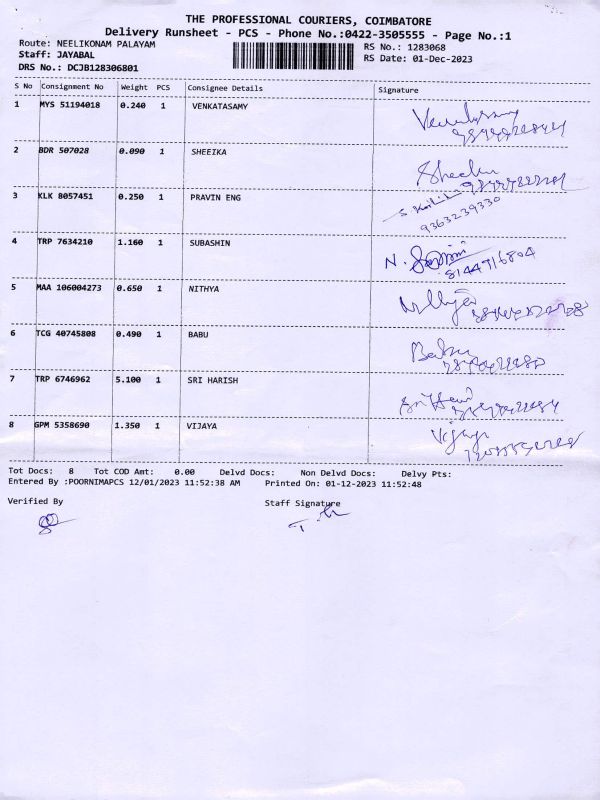 THE PROFESSIONAL COURIERS, COIMBATORE
Delivery Runsheet - PCS - Phone No.:0422-3505555 - Page No.:1
Route: NEELIKONAM PALAYAM RS No.: 1283068
Staff: JAYABAL RS Date: 01-Dec-2023
DRS No.: DCJB128306801
S No Consignment No Weight PCS Consignee Details Signature
1 MYS 51194018 0.240 1 VENKATASAMY Venkatasamy
2 BDR 507028 0.090 1 SHEEIKA
3 KLK 8057451 0.250 1 PRAVIN ENG
9363239330
4 TRP 7634210 1.160 1 SUBASHIN N.
8144716804
5 MAA 106004273 0.650 1 NITHYA Nithya
6 TCG 40745808 0.490 1 BABU Babu
7 TRP 6746962 5.100 1 SRI HARISH
8 GPM 5358690 1.350 1 VIJAYA Vijaya
Tot Docs: 8 Tot COD Amt: 0.00 Delvd Docs: Non Delvd Docs: Delvy Pts:
Entered By :POORNIMAPCS 12/01/2023 11:52:38 AM Printed On: 01-12-2023 11:52:48
Verified By Staff Signature